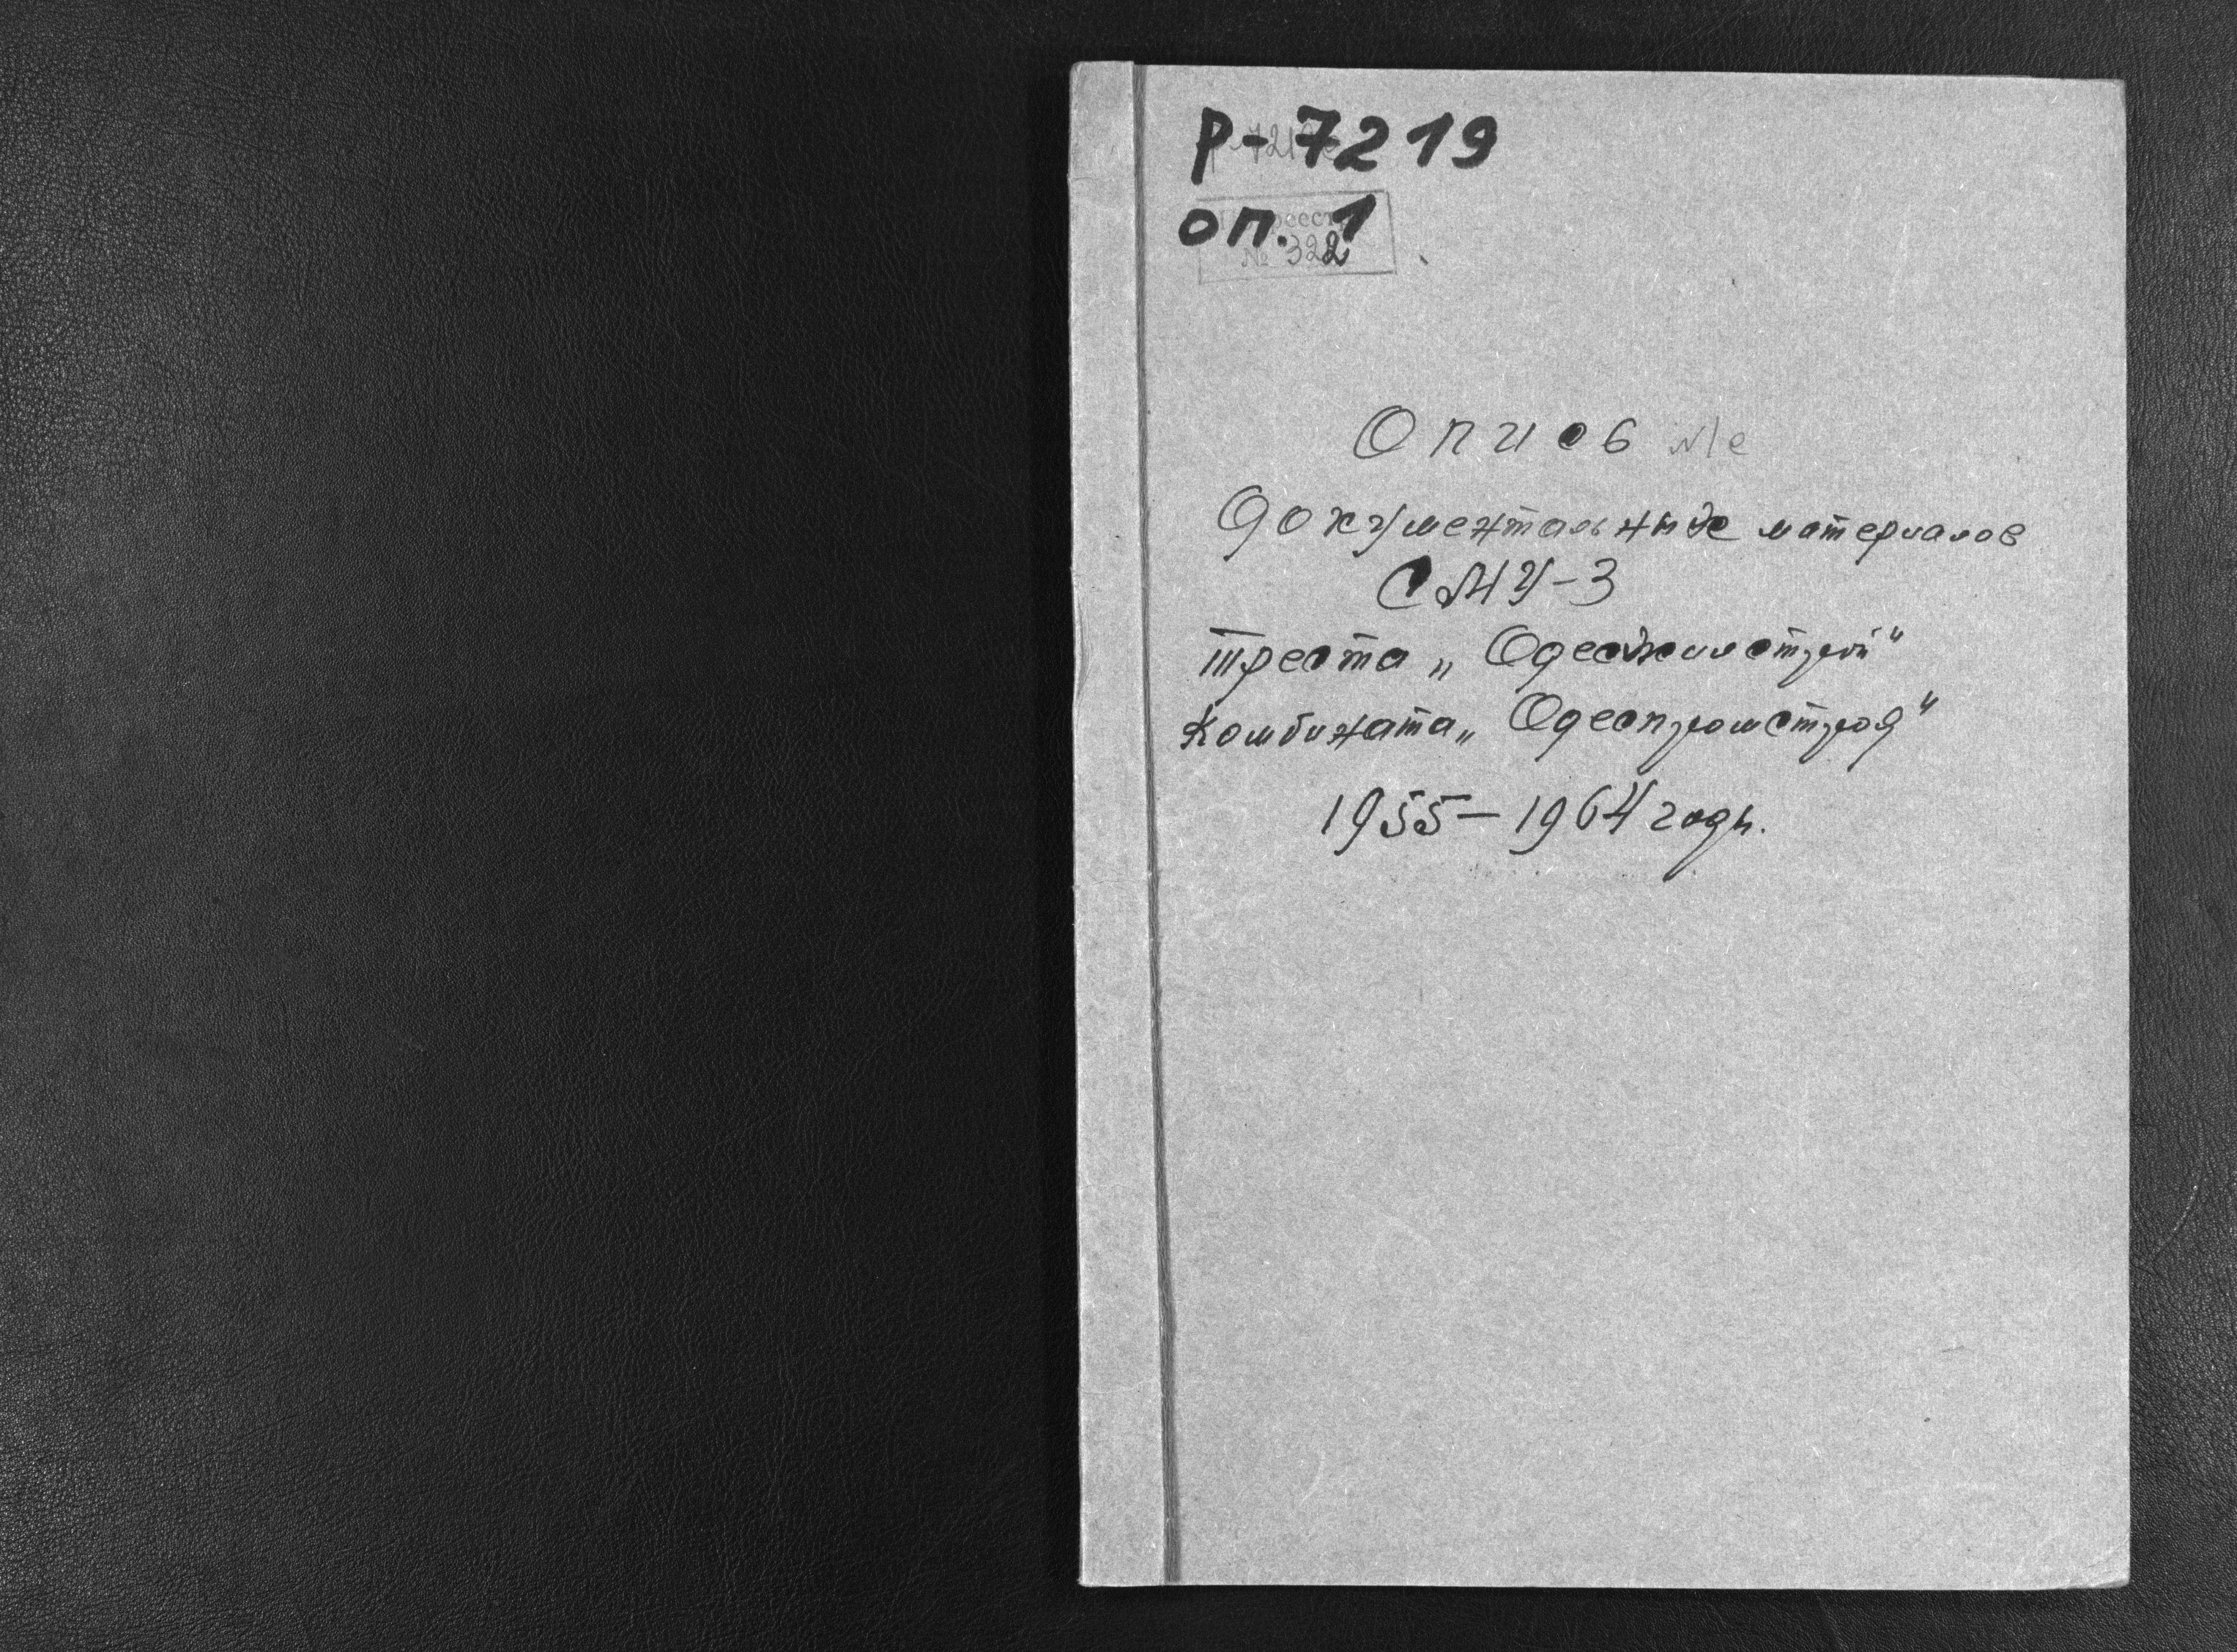 Р-7219
оп. 1
№ 322
Опись
документальных материалов
СМУ-3
треста „Одесжилстрой"
комбината „Одеспромстрой"
1955-1964 годы.